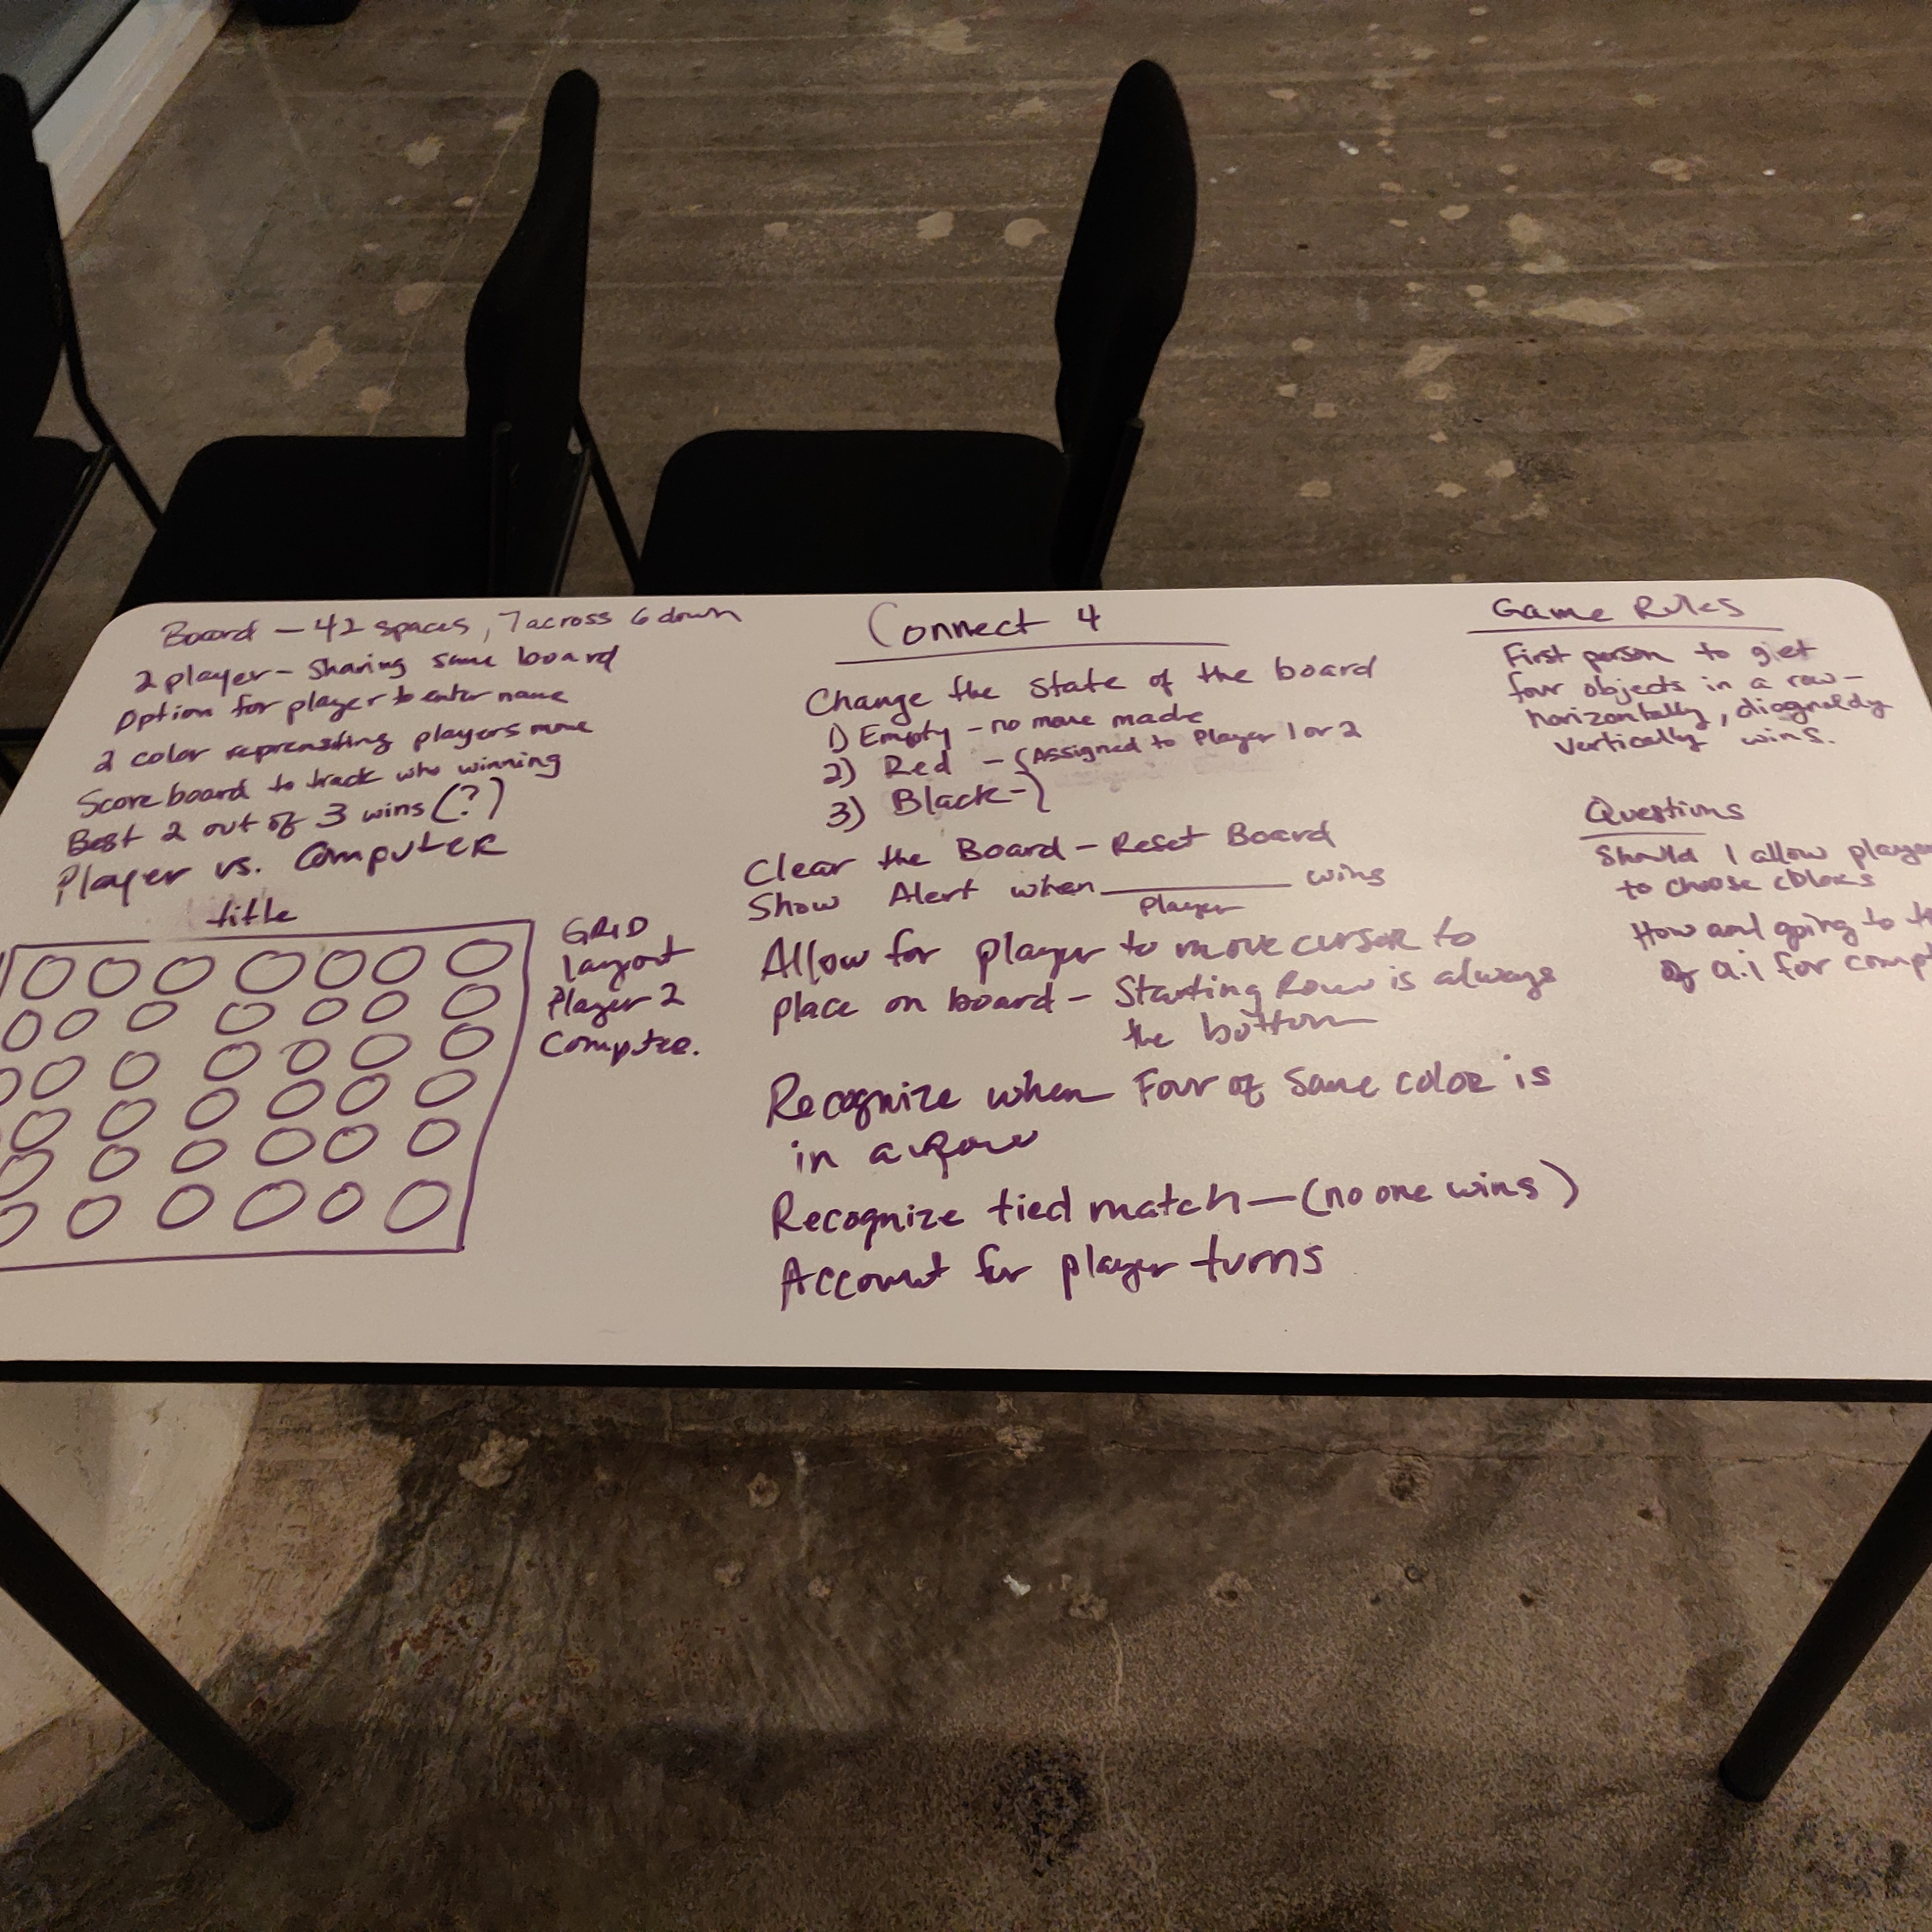 Board - 42 spaces, 7 across 6 down
2 player - Sharing same board
Option for player to enter name
2 color players move
Score board to track who winning
Best 2 out of 3 wins (?)
Player vs. Computer
title
GRID
layout
Player 2
Connect 4
Change the state of the board
1) Empty - no move made
2) Red - (Assigned to Player 1 or 2
3) Black - )
Clear the Board - Reset Board
Show Alert when ________ wins
Player
Allow for player to move cursor to
place on board - Starting Row is always
the bottom
Recognize when Four of same color is
in a Row
Recognize tied match - (no one wins)
Account for player turns
Game Rules
First person to get
four objects in a row -
horizontally,
vertically wins.
Questions
Should I allow player
to choose colors
How am I going to
of a.i for comp